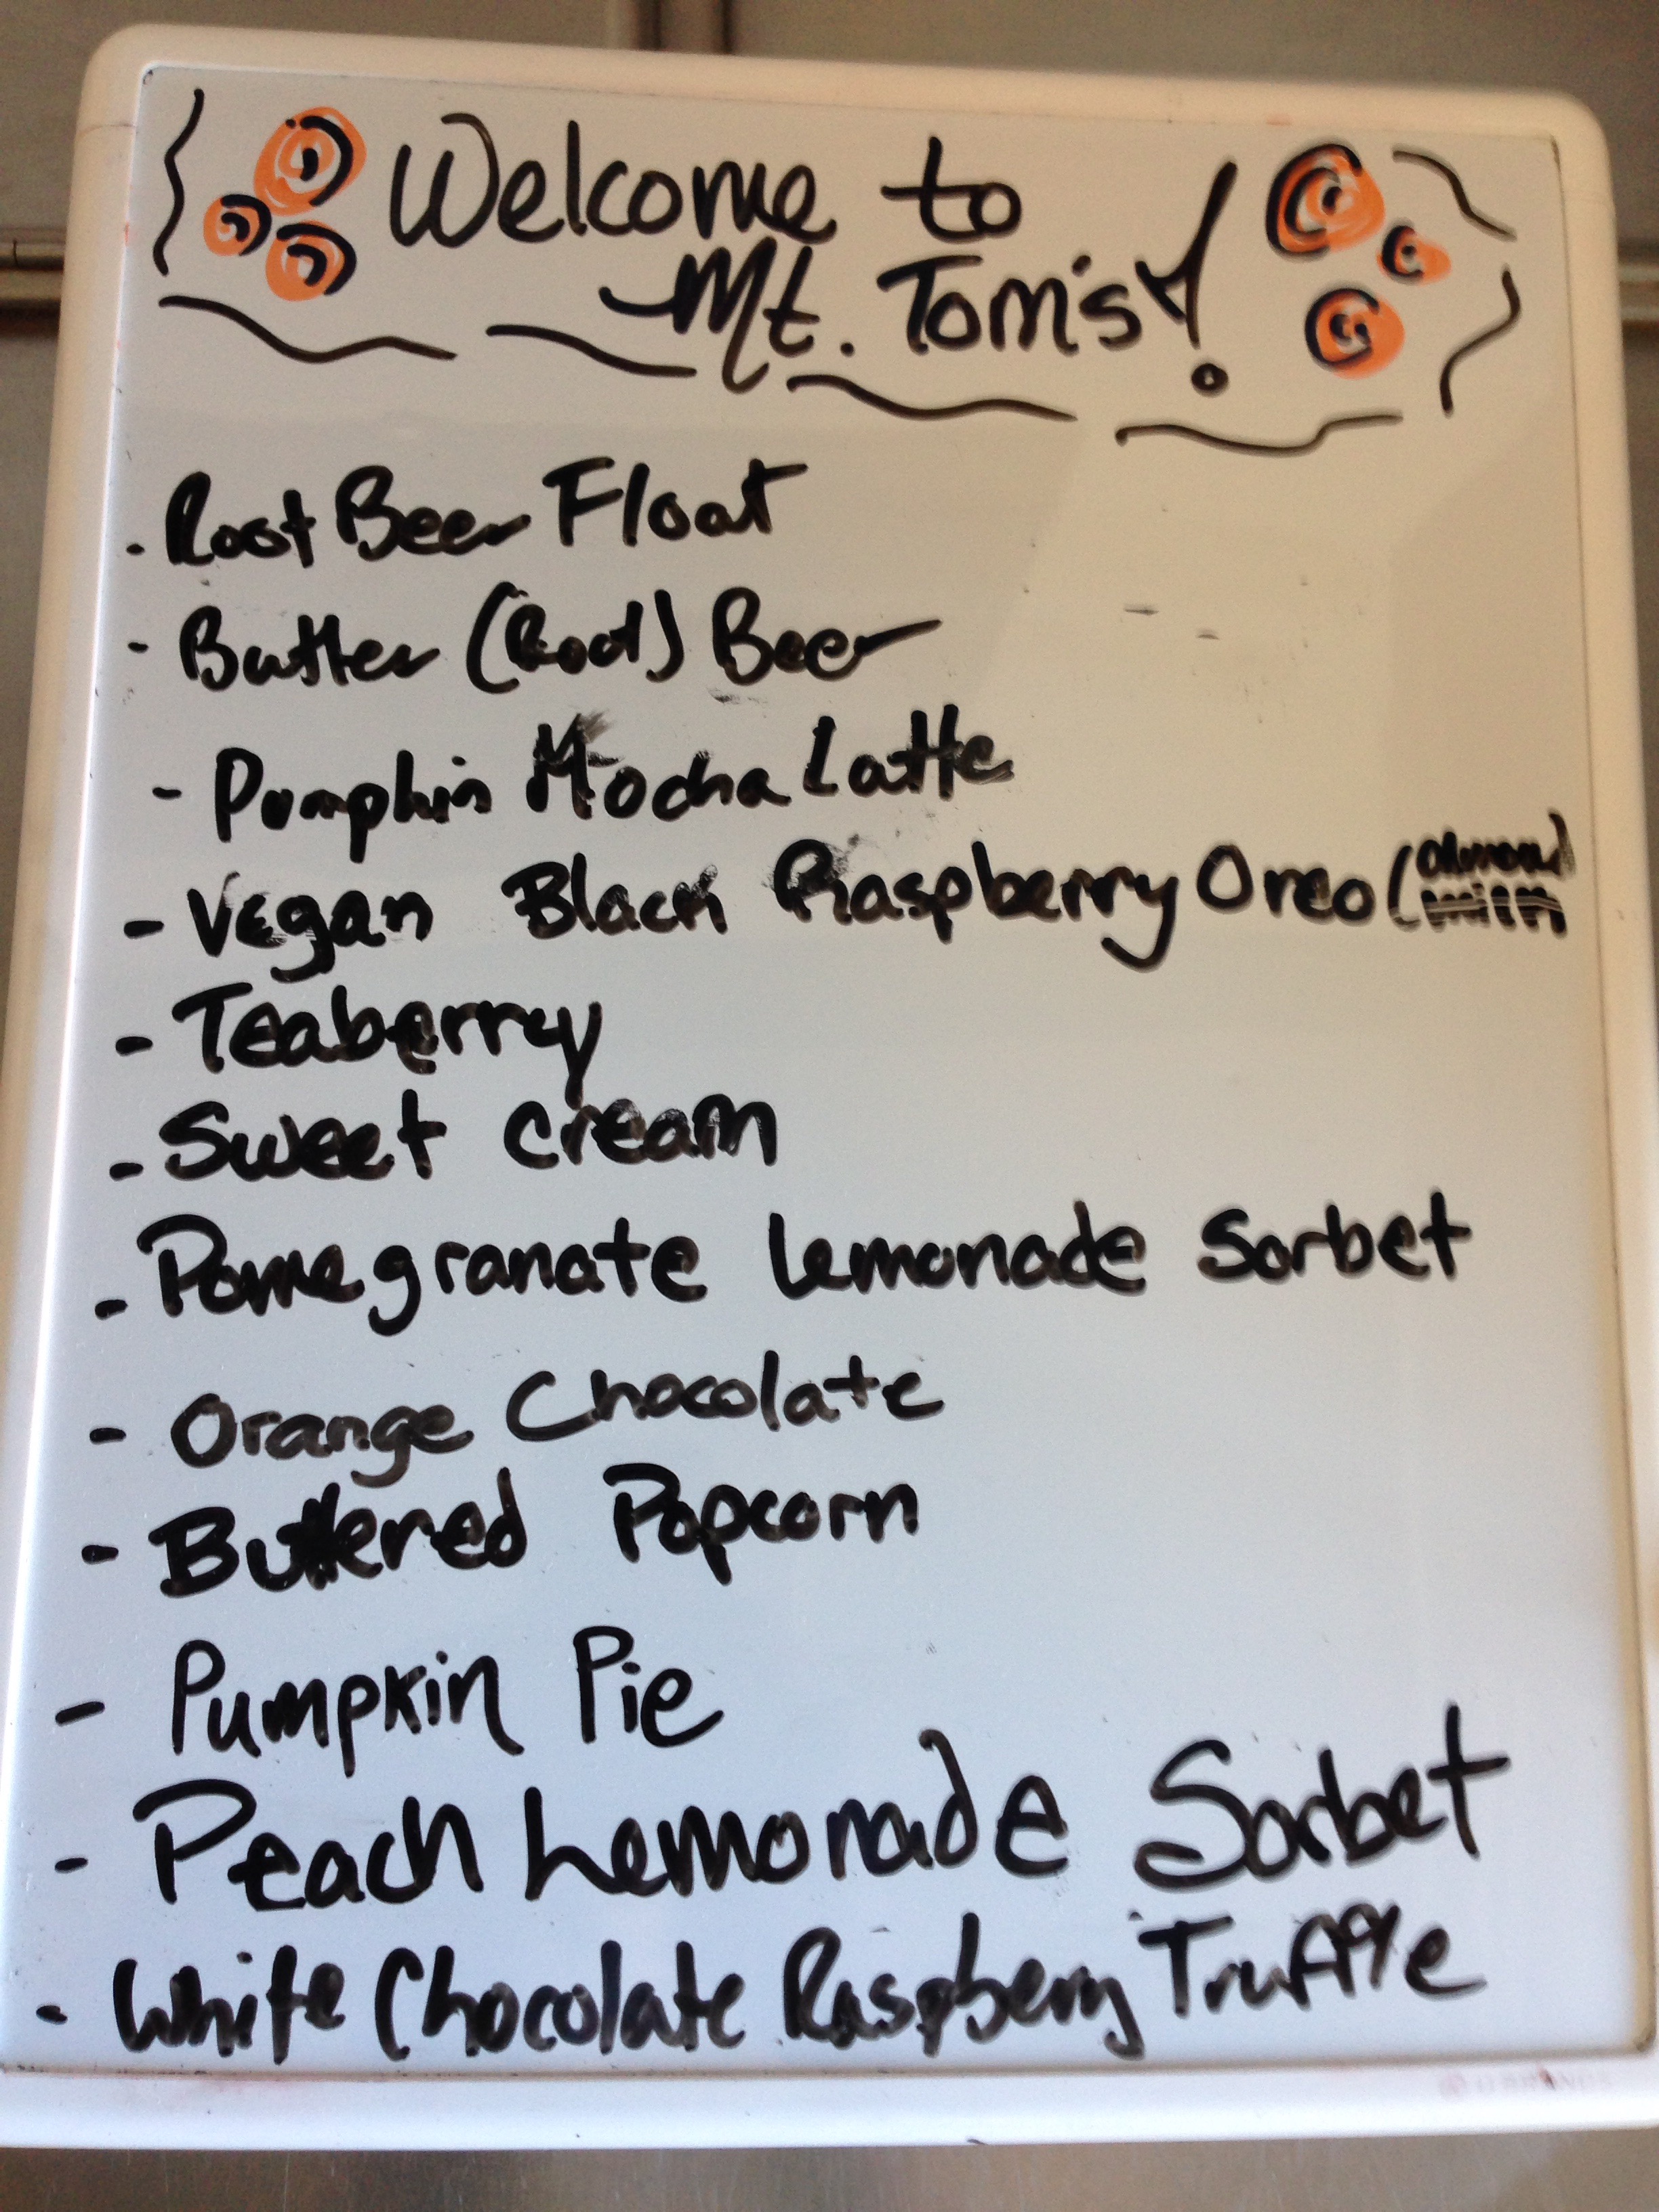 Welcome to
Mt. Tom's!
. Root Beer Float
- Butter (Root) Beer
- Pumpkin Mocha Latte
- Vegan Black Raspberry Oreo (almond
milk
- Teaberry
- Sweet cream
- Pomegranate Lemonade Sorbet
- Orange Chocolate
- Buttered Popcorn
- Pumpkin Pie
- Peach Lemonade Sorbet
- White Chocolate Raspberry Truffle